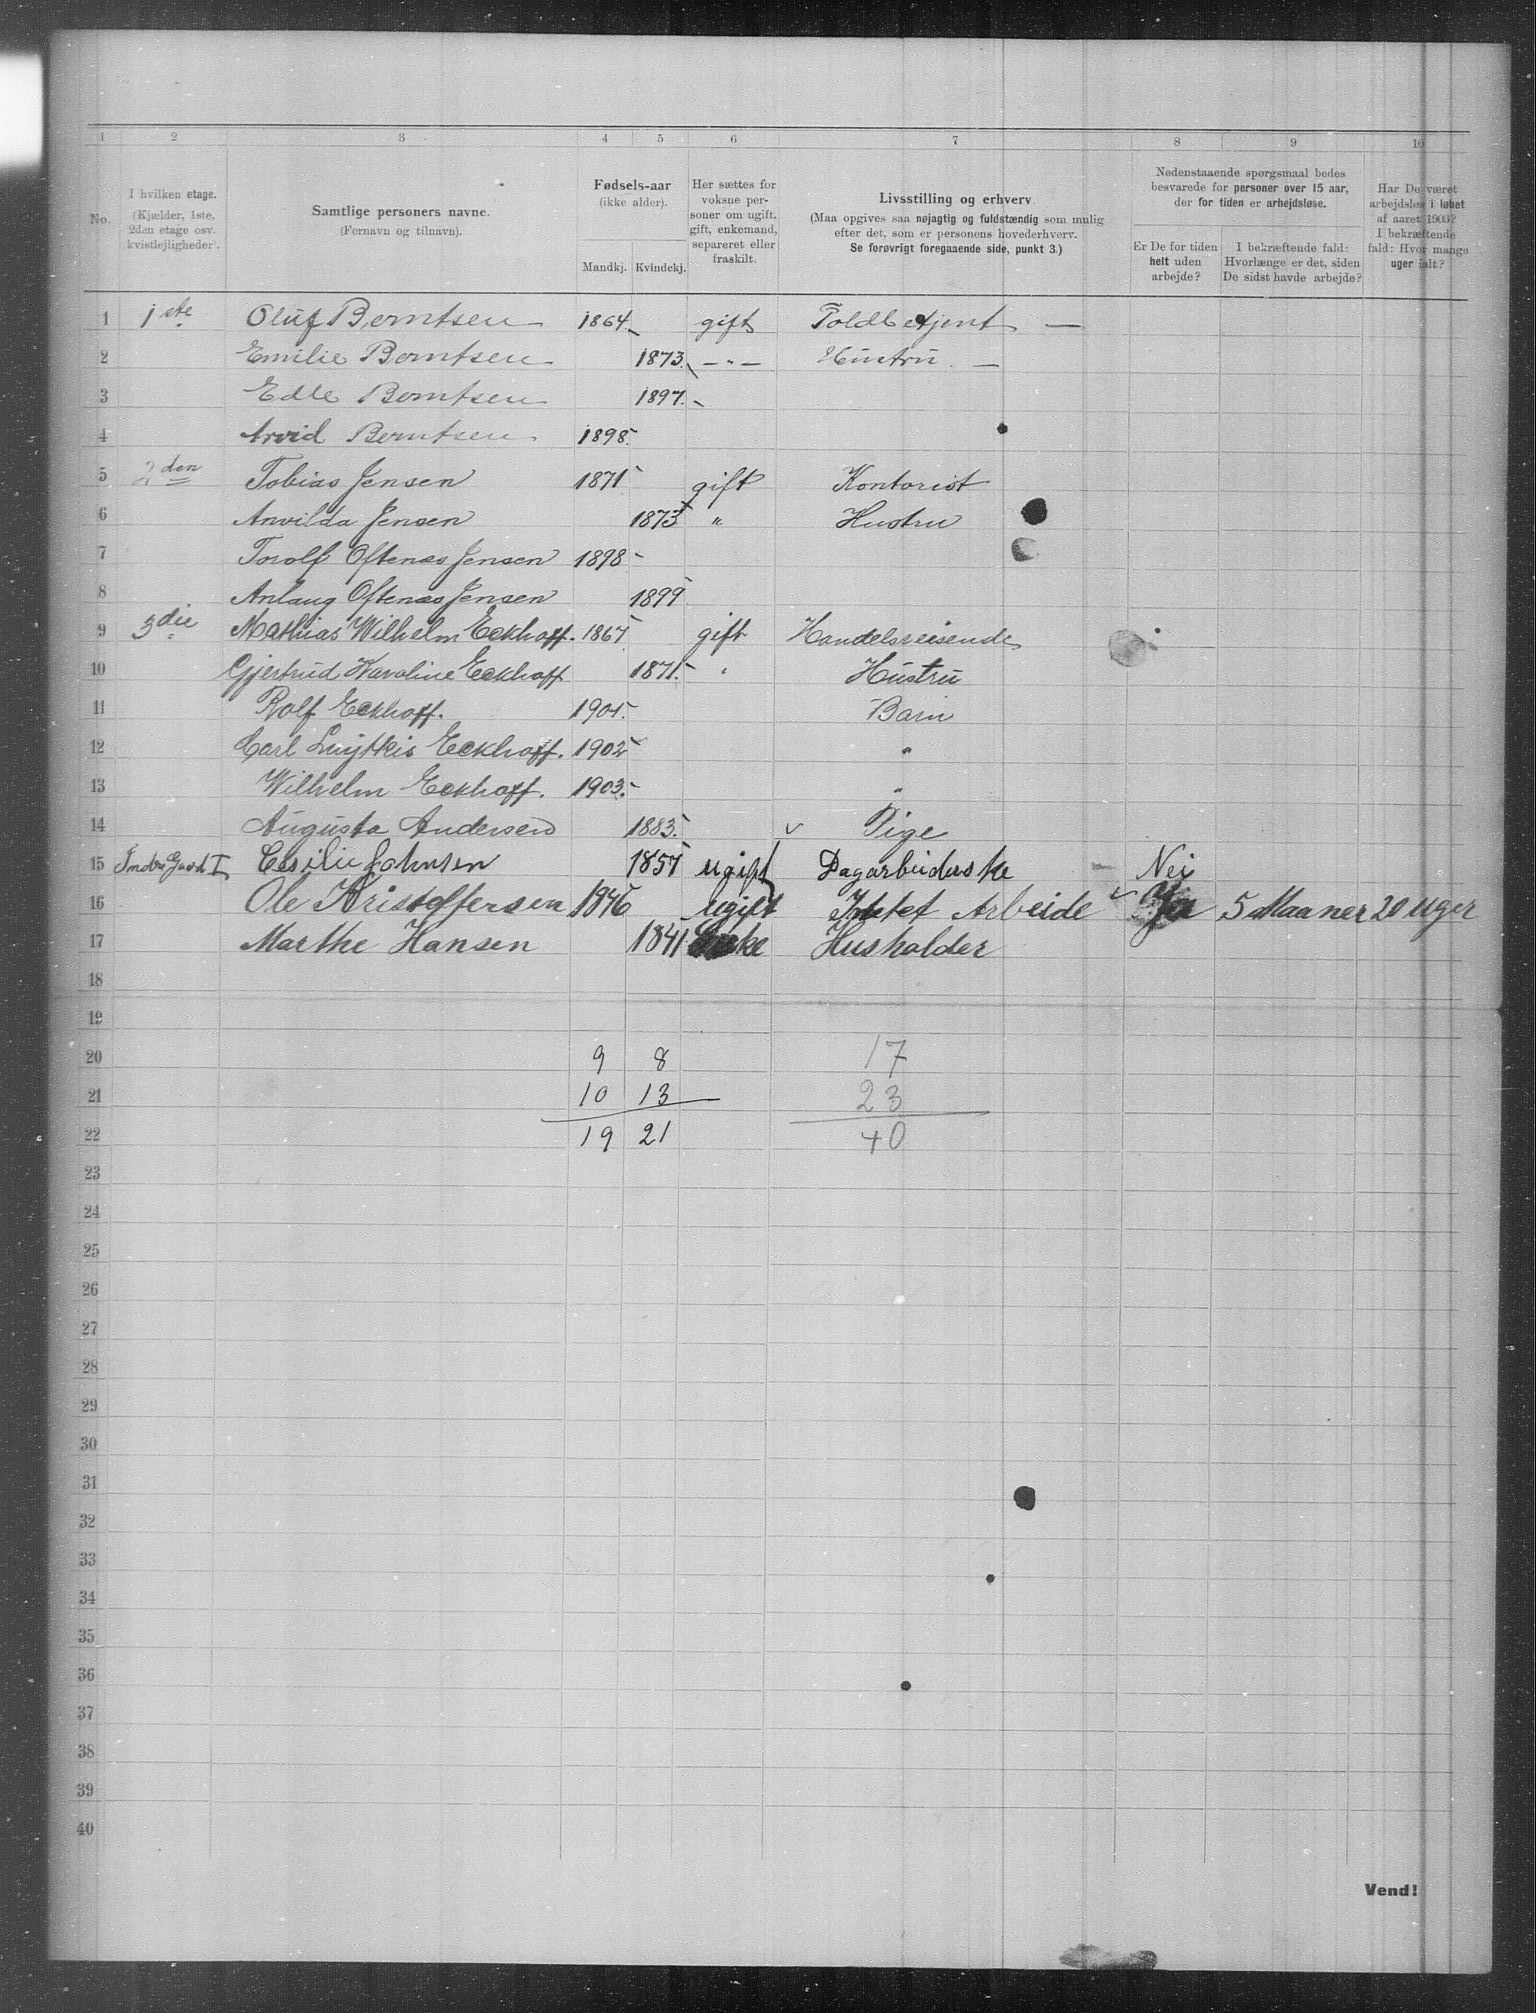 1 2 3 4 5 6 7 8 9 10
No.
I hvilken etage.
(Kjælder, 1ste,
2den etage osv.
kvistlejligheder).
Samtlige personers navne.
(Fornavn og tilnavn).
Fødsels-aar
(ikke alder).
Mandkj. Kvindekj.
Her sættes for
voksne per-
soner om ugift,
gift, enkemand,
separeret eller
fraskilt.
Livsstilling og erhverv.
(Maa opgives saa nøjagtig og fuldstændig som mulig
efter det, som er personens hovederhverv.
Se forøvrigt foregaaende side, punkt 3.)
Nedenstaaende spørgsmaal bedes
besvarede for personer over 15 aar,
der for tiden er arbejdsløse.
Er De for tiden
helt uden
arbejde?
I bekræftende fald:
Hvorlænge er det, siden
De sidst havde arbejde?
Har De været
arbejdsløs i løbet
af aaret 1903?
I bekræftende
fald: Hvor mange
uger ialt?
1 1ste Oluf Berntsen 1864 gift Toldbetjent —
2 Emilie Berntsen 1873. — " — Hustru —
3 Edle Berntsen 1897.
4 Arvid Berntsen 1898.
5 2den Tobias Jensen 1871 gift Kontorist
6 Anvilda Jensen 1873 " Hustru
7 Torolf Oftenæs Jensen 1898
8 Anlaug Oftenæs Jensen 1899
9 3die Mathias Wilhelm Eckhoff. 1867 gift Handelsreisende
10 Gjertrud Karoline Eckhoff 1871. " Hustru
11 Rolf Eckhoff. 1901. Barn
12 Carl Eckhoff. 1902 "
13 Wilhelm Eckhoff. 1903. "
14 Augusta Andersen 1883. Pige
15 Indre Gaard I Cesilie Johnsen 1857 ugift Dagarbeiderske Nei
16 Ole Kristoffersen 1846 Ugift Intet Arbeide Ja 5 Maaner 20 uger
17 Marthe Hansen 1841 Enke Husholder
18
19
20 9 8 17
21 10 13 23
22 19 21 40
23
24
25
26
27
28
29
30
31
32
33
34
35
36
37
38
39
40
Vend!